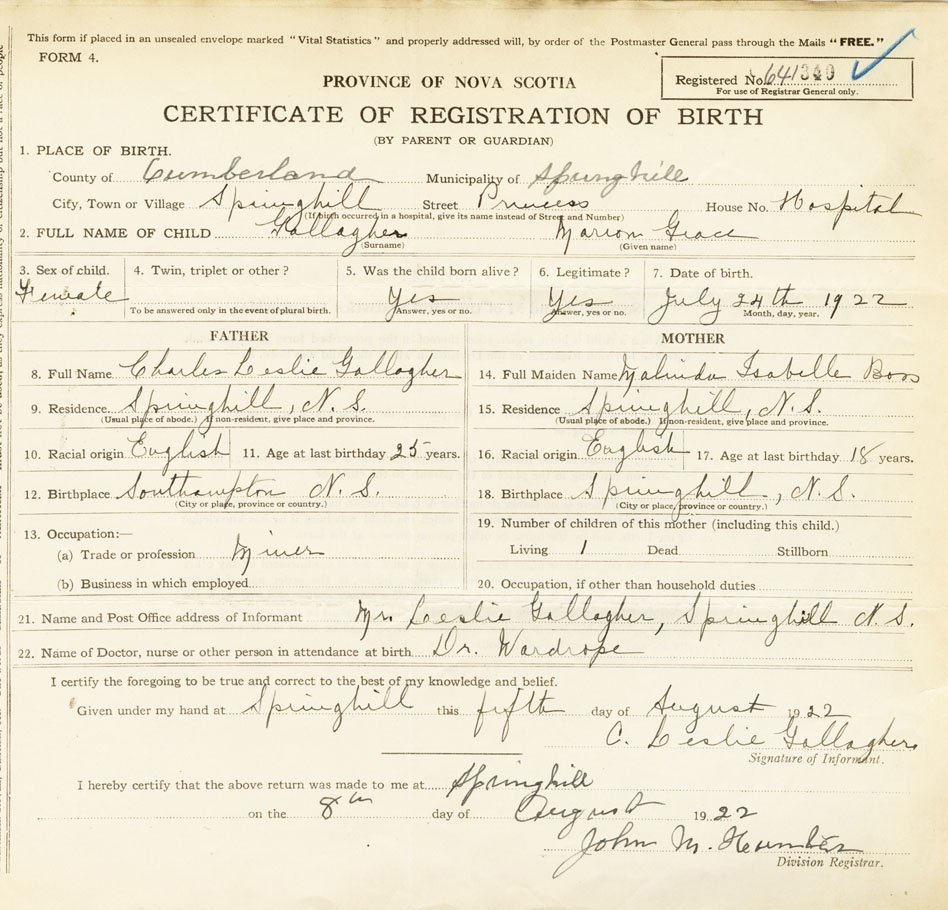 This form if placed in an unsealed envelope marked "Vital Statistics" and properly addressed will, by order of the Postmaster General pass through the Mails "FREE."
FORM 4.
Registered No. 641340
For use of Registrar General only.
PROVINCE OF NOVA SCOTIA
CERTIFICATE OF REGISTRATION OF BIRTH
(BY PARENT OR GUARDIAN)
1. PLACE OF BIRTH.
County of Cumberland Municipality of Springhill
City, Town or Village Springhill Street Princess House No. Hospital
(If birth occurred in a hospital, give its name instead of Street and Number)
2. FULL NAME OF CHILD Gallagher Marion Grace
(Surname) (Given name)
3. Sex of child. 4. Twin, triplet or other? 5. Was the child born alive? 6. Legitimate? 7. Date of birth.
Female Yes Yes July 24th 1922
To be answered only in the event of plural birth. Answer, yes or no. Answer, yes or no. Month, day, year.
FATHER MOTHER
8. Full Name Charles Leslie Gallagher 14. Full Maiden Name Malinda Isabelle Boss
9. Residence. Springhill, N.S. 15. Residence Springhill, N.S.
(Usual place of abode.) If non-resident, give place and province. (Usual place of abode.) If non-resident, give place and province.
10. Racial origin English 11. Age at last birthday 25 years. 16. Racial origin English 17. Age at last birthday 18 years.
12. Birthplace Southampton N.S. 18. Birthplace Springhill, N.S.
(City or place, province or country.) (City or place, province or country.)
13. Occupation:— 19. Number of children of this mother (including this child.)
(a) Trade or profession Miner Living 1 Dead Stillborn
(b) Business in which employed 20. Occupation, if other than household duties
21. Name and Post Office address of Informant Mr. Leslie Gallagher, Springhill N.S.
22. Name of Doctor, nurse or other person in attendance at birth Dr. Wardrope
I certify the foregoing to be true and correct to the best of my knowledge and belief.
Given under my hand at Springhill this fifth day of August 1922
C. Leslie Gallagher
Signature of Informant.
I hereby certify that the above return was made to me at Springhill
on the 8th day of August 1922
John M. Hunter
Division Registrar.